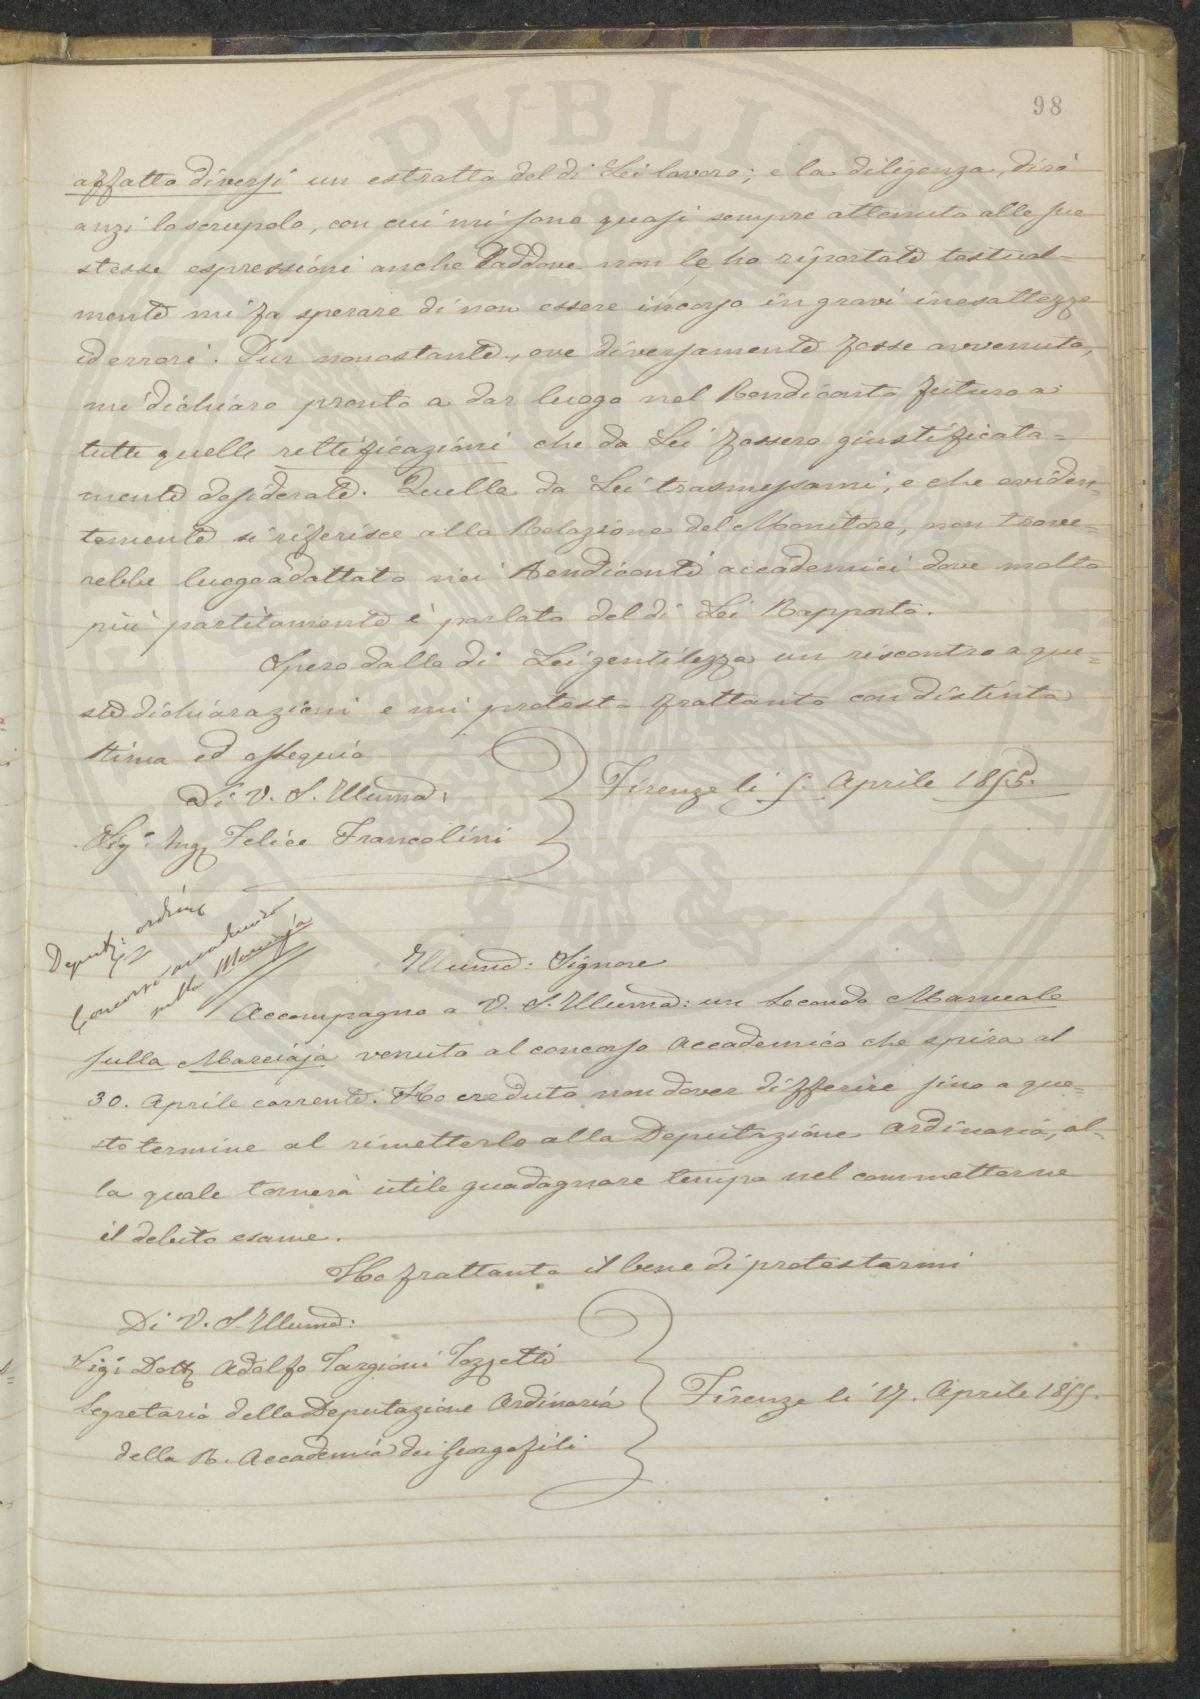 98
affatto diversi un estratto del di Lei lavoro; e la diligenza, dirò
anzi lo scrupolo, con cui mi sono quasi sempre attenuto alle sue
stesse espressioni anche laddove non le ho riportate testual=
mente mi fa sperare di non essere incorso in gravi inesattezze
ed errori. Pur nonostante, ove diversamente fosse avvenuto,
mi dichiaro pronto a dar luogo nel Rendiconto futuro a
tutte quelle rettificazioni che da Lei fossero giustificata=
mente desiderate. Quella da Lei trasmessami, e che eviden=
temente si riferisce alla Relazione del Monitore, non trove=
rebbe luogo adattato nei Rendiconti accademici dove molto
più partitamente è parlato del di Lei Rapporto.
Spero dalla di Lei gentilezza un riscontro a que=
ste dichiarazioni e mi protesto frattanto con distinta
stima ed ossequio
Di V. S. Illuma:
Firenze li 5. Aprile 1855.
Sigr: Ing Felice Francolini
Deputz: ordina
Concorso accademico
sulla Marciaja
Illumo: Signore
Accompagno a V. S. Illuma: un secondo Manuale
sulla Marciaja venuto al concorso Accademico che spira al
30. Aprile corrente. Ho creduto non dover differire sino a que=
sto termine al rimetterlo alla Deputazione Ordinaria, al=
la quale tornerà utile guadagnare tempo nel commetterne
il debito esame.
Ho frattanto il bene di protestarmi
Di V. S. Illuma:
Sigr: Dott Adolfo Targioni Tozzetti
Segretario della Deputazione Ordinaria
Firenze li 17. Aprile 1855.
della R. Accademia dei Georgofili